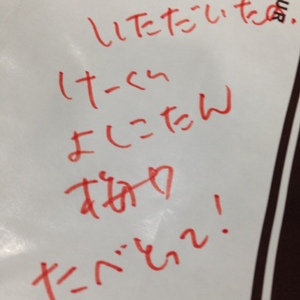 いただいたの.
けーくん
よしこたん
ずめり
たべとって!
UR